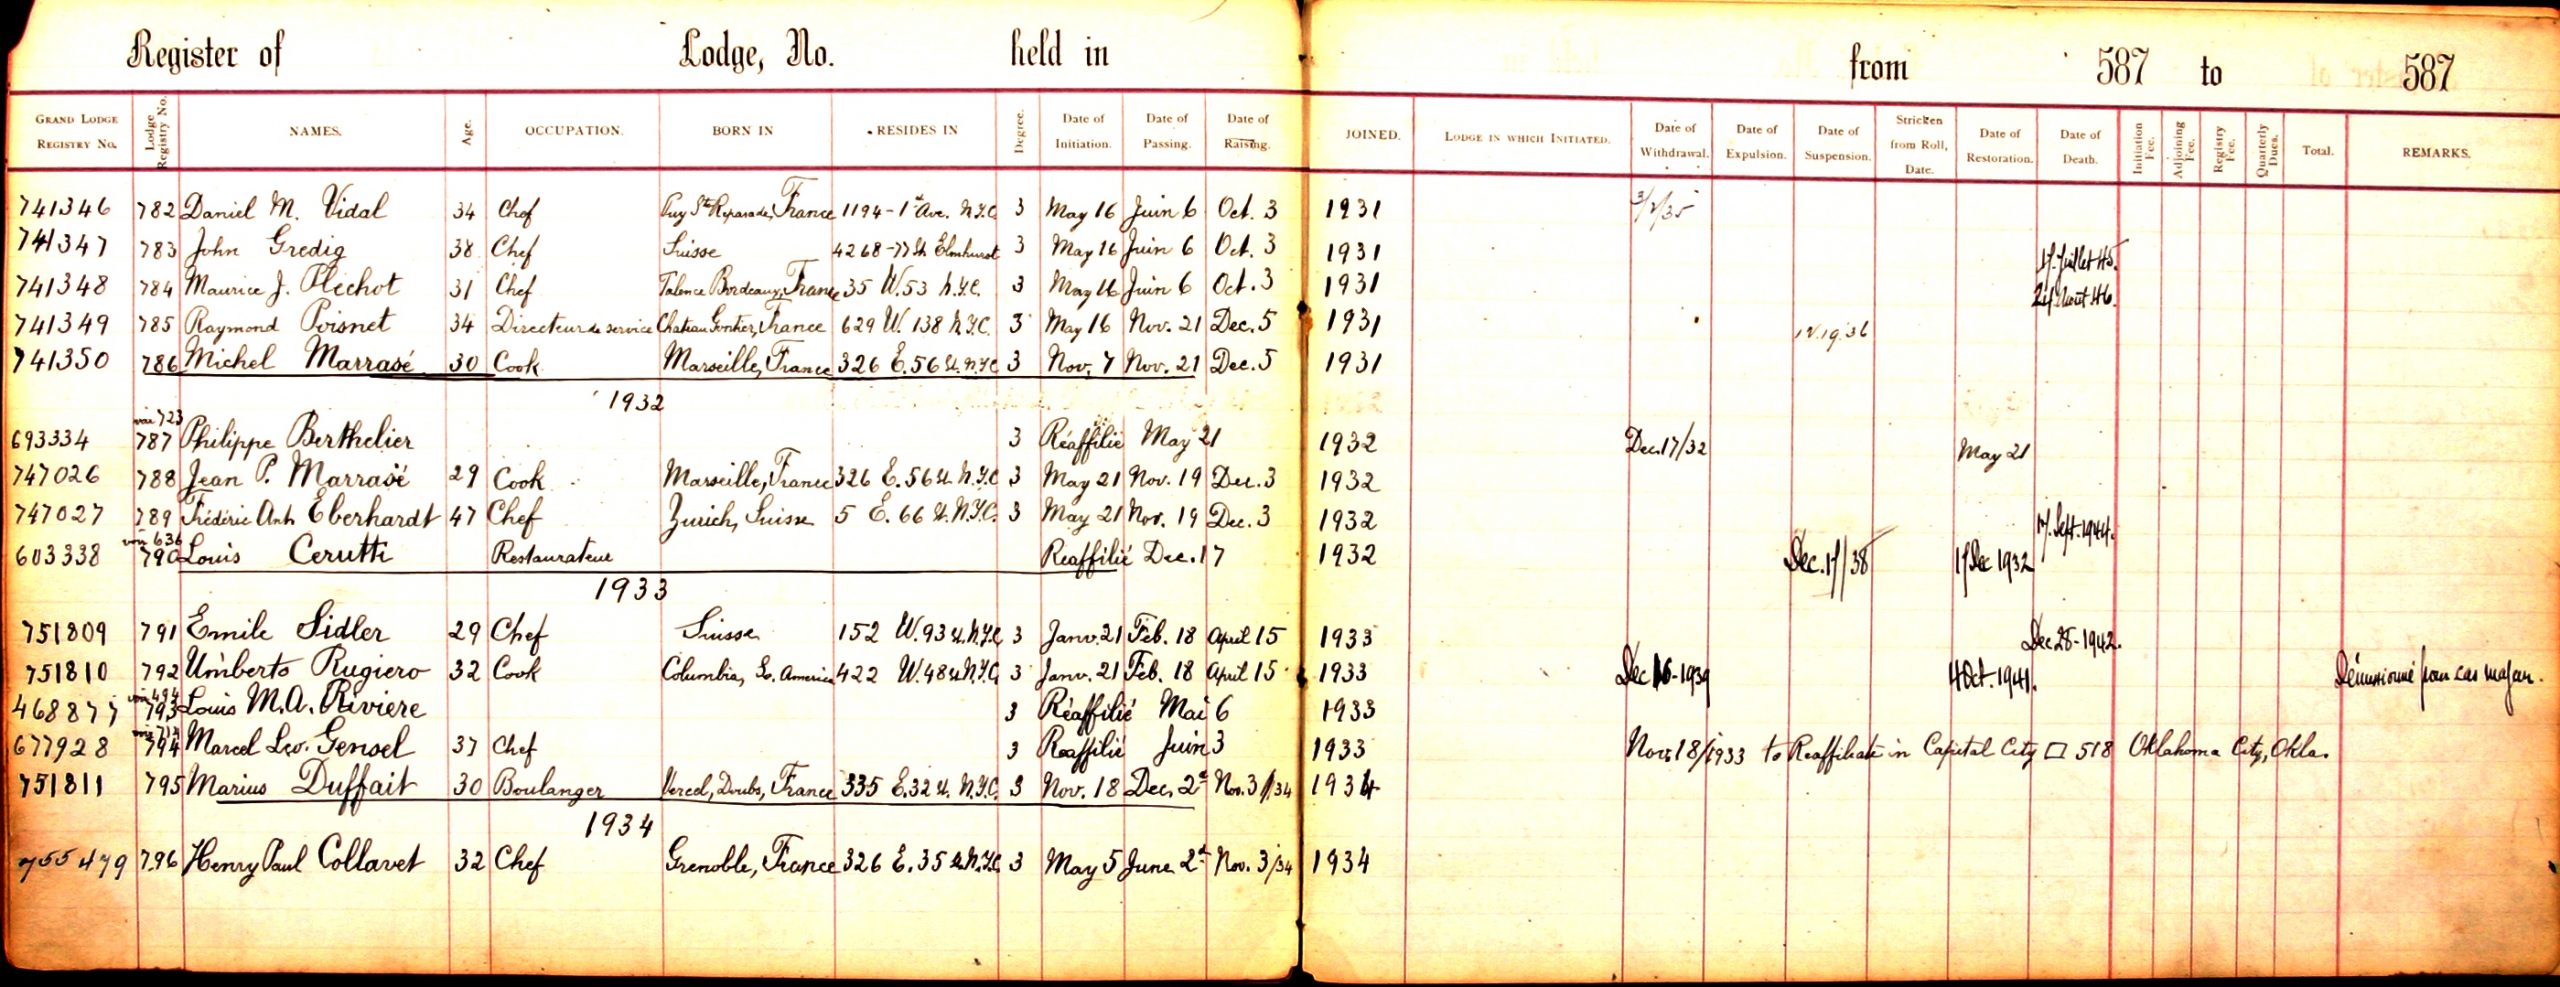 Register of Lodge, No. held in from 587 to 587
GRAND LODGE REGISTRY No. Lodge Registry No. NAMES. Age. OCCUPATION. BORN IN RESIDES IN Degree. Date of Initiation. Date of Passing. Date of Raising. JOINED. LODGE IN WHICH INITIATED. Date of Withdrawal. Date of Expulsion. Date of Suspension. Stricken from Roll, Date. Date of Restoration. Date of Death. Initiation Fee. Adjoining Fee. Registry Fee. Quarterly Dues. Total. REMARKS.
741346 782 Daniel M. Vidal 34 Chef Puy Ste Reparade, France 1194-1st Ave. N.Y.C. 3 May 16 Juin 6 Oct. 3 1931
741347 783 John Gredig 38 Chef Suisse 4268-77 St Elmhurst 3 May 16 Juin 6 Oct. 3 1931 17. Juillet 45.
741348 784 Maurice J. Plechot 31 Chef Talence Bordeaux, France 35 W. 53 N.Y.C. 3 May 16 Juin 6 Oct. 3 1931 24. Aout 46.
741349 785 Raymond Poisnet 34 Directeur de service Chateau Gontier, France 629 W. 138 N.Y.C. 3 May 16 Nov. 21 Dec. 5 1931 12.19.36
741350 786 Michel Marrasé 30 Cook Marseille, France 326 E. 56 St. N.Y.C. 3 Nov. 7 Nov. 21 Dec. 5 1931
1932
voir 723
693334 787 Philippe Berthelier 3 Réaffilié May 21 1932 Dec. 17/32 May 21
747026 788 Jean P. Marrasé 29 Cook Marseille, France 326 E. 56 St. N.Y.C 3 May 21 Nov. 19 Dec. 3 1932
747027 789 Frédéric Ant. Eberhardt 47 Chef Zurich, Suisse 5 E. 66 St. N.Y.C. 3 May 21 Nov. 19 Dec. 3 1932 17. Sept. 1944.
voir 636
603338 790 Louis Cerutti Restaurateur Reaffilié Dec. 17 1932 Dec. 17/38 17 Dec 1932
1933
751809 791 Emile Sidler 29 Chef Suisse 152 W. 93 St. N.Y.C. 3 Janv. 21 Feb. 18 April 15 1933 Dec 28-1942.
751810 792 Umberto Rugiero 32 Cook Columbia, S. America 422 W. 48 St N.Y.C. 3 Janv. 21 Feb. 18 April 15 1933 Dec 16-1939 4 Oct. 1941. Démissionné pour cas majeur.
voir 494
468877 793 Louis M.A. Rivière 3 Réaffilié Mai 6 1933
677928 794 Marcel Leo. Gensel 37 Chef 3 Reaffilié Juin 3 1933 Nov. 18/1933 to Reaffiliate in Capital City □ 518 Oklahoma City, Okla.
751811 795 Marius Duffait 30 Boulanger Vercel, Doubs, France 335 E. 32 St. N.Y.C. 3 Nov. 18 Dec. 2d Nov. 3/34 1934
1934
755479 796 Henry Paul Collavet 32 Chef Grenoble, France 326 E. 35 St. N.Y.C. 3 May 5 June 2d Nov. 3/34 1934